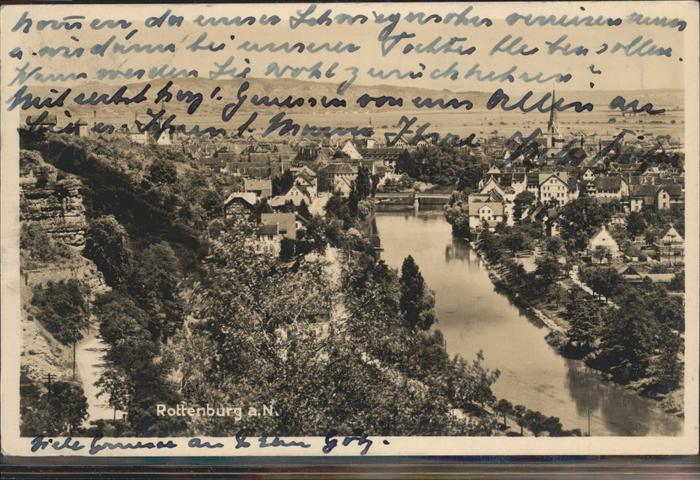 kommen, da unser Schwiegersohn verreisen muss
u. wir dann bei unserer Tochter bleiben sollen.
Wann werden Sie wohl zurückkehren?
Mit recht herzl. Grüssen von uns Allen an
Sie u. Ihren l. Mann Ihre
Rottenburg a. N.
Viele Grüsse an